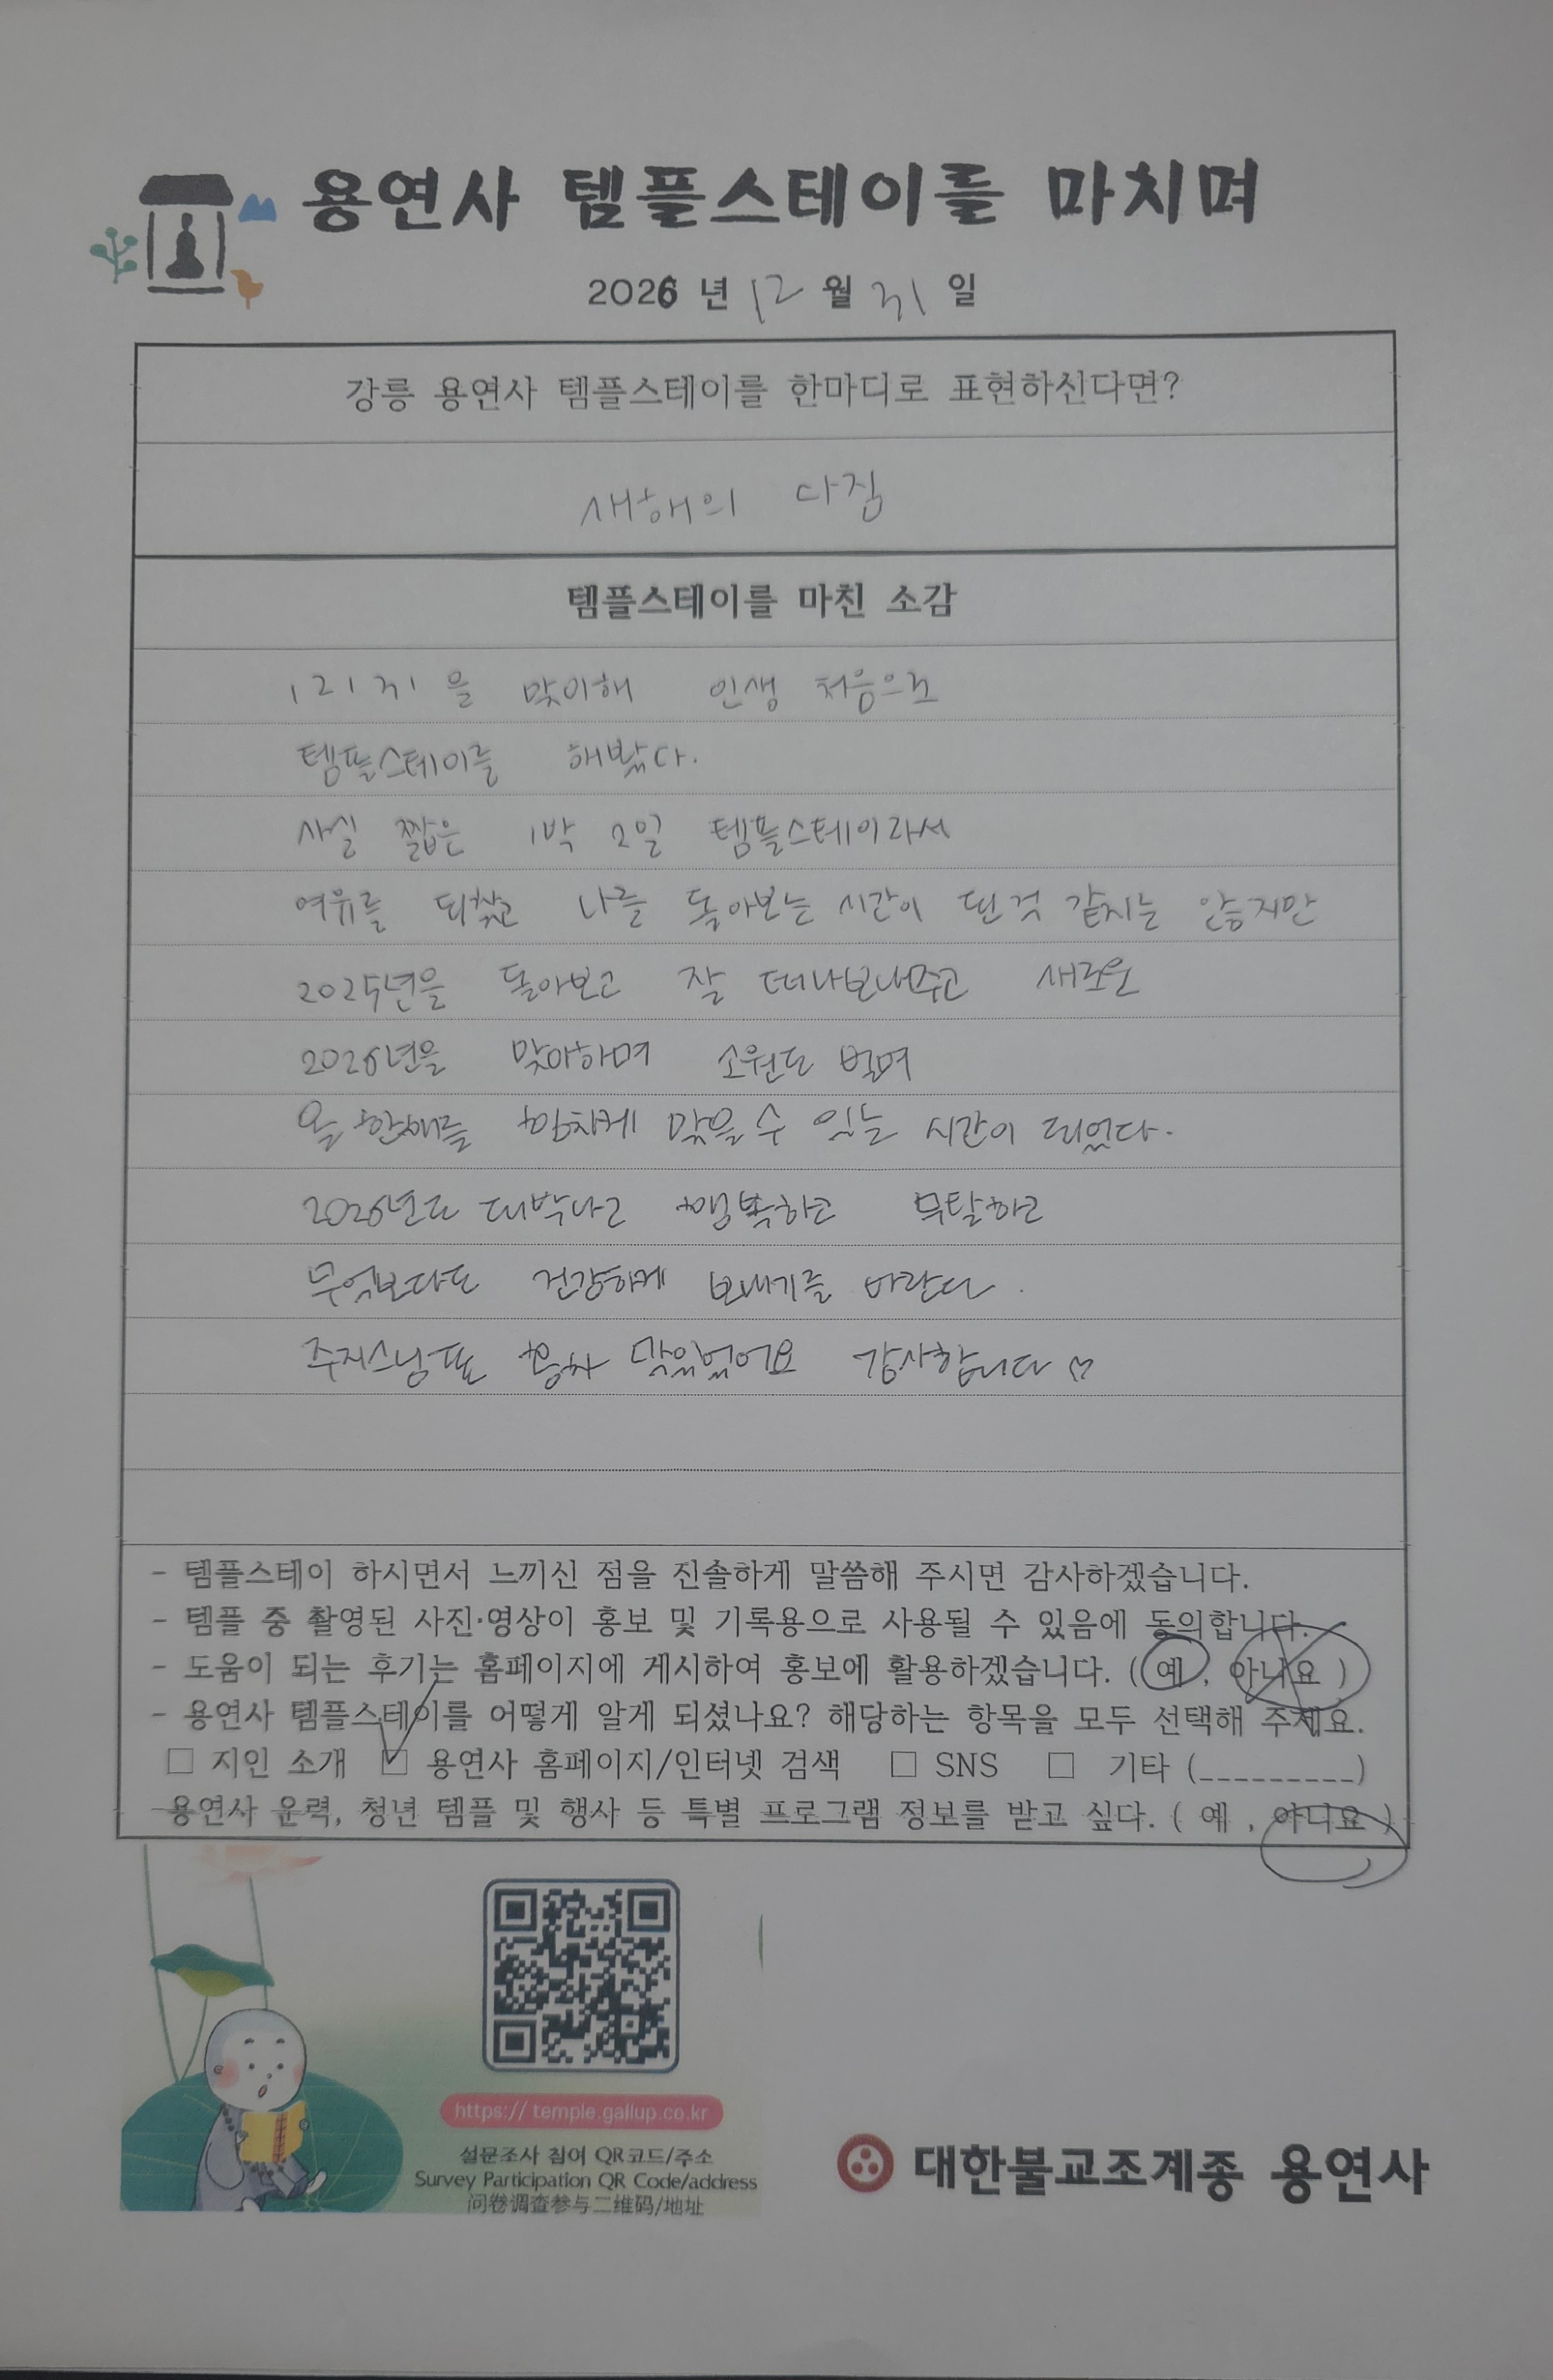 용연사 템플스테이를 마치며
2026 년 12 월 31 일
강릉 용연사 템플스테이를 한마디로 표현하신다면?
새해의 다짐
템플스테이를 마친 소감
12/31 을 맞이해 인생 처음으로
템플스테이를 해봤다.
사실 짧은 1박 2일 템플스테이라서
여유를 되찾고 나를 돌아보는 시간이 된것 같지는 않지만
2025년을 돌아보고 잘 떠나보내주고 새로운
2026년을 맞아하며 소원도 빌며
올 한해를 힘차게 맞을 수 있는 시간이 되었다.
2026년도 대박나고 행복하고 무탈하고
무엇보다도 건강하게 보내기를 바란다.
주지스님표 홍차 맛있었어요 감사합니다 ♡
- 템플스테이 하시면서 느끼신 점을 진솔하게 말씀해 주시면 감사하겠습니다.
- 템플 중 촬영된 사진·영상이 홍보 및 기록용으로 사용될 수 있음에 동의합니다.
- 도움이 되는 후기는 홈페이지에 게시하여 홍보에 활용하겠습니다. ( 예 , 아니요 )
- 용연사 템플스테이를 어떻게 알게 되셨나요? 해당하는 항목을 모두 선택해 주세요.
□ 지인 소개 ☑ 용연사 홈페이지/인터넷 검색 □ SNS □ 기타 (_________)
-용연사 운력, 청년 템플 및 행사 등 특별 프로그램 정보를 받고 싶다. ( 예 , 아니요 )
https:// temple.gallup.co.kr
설문조사 참여 QR코드/주소
Survey Participation QR Code/address
问卷调查参与二维码/地址
대한불교조계종 용연사